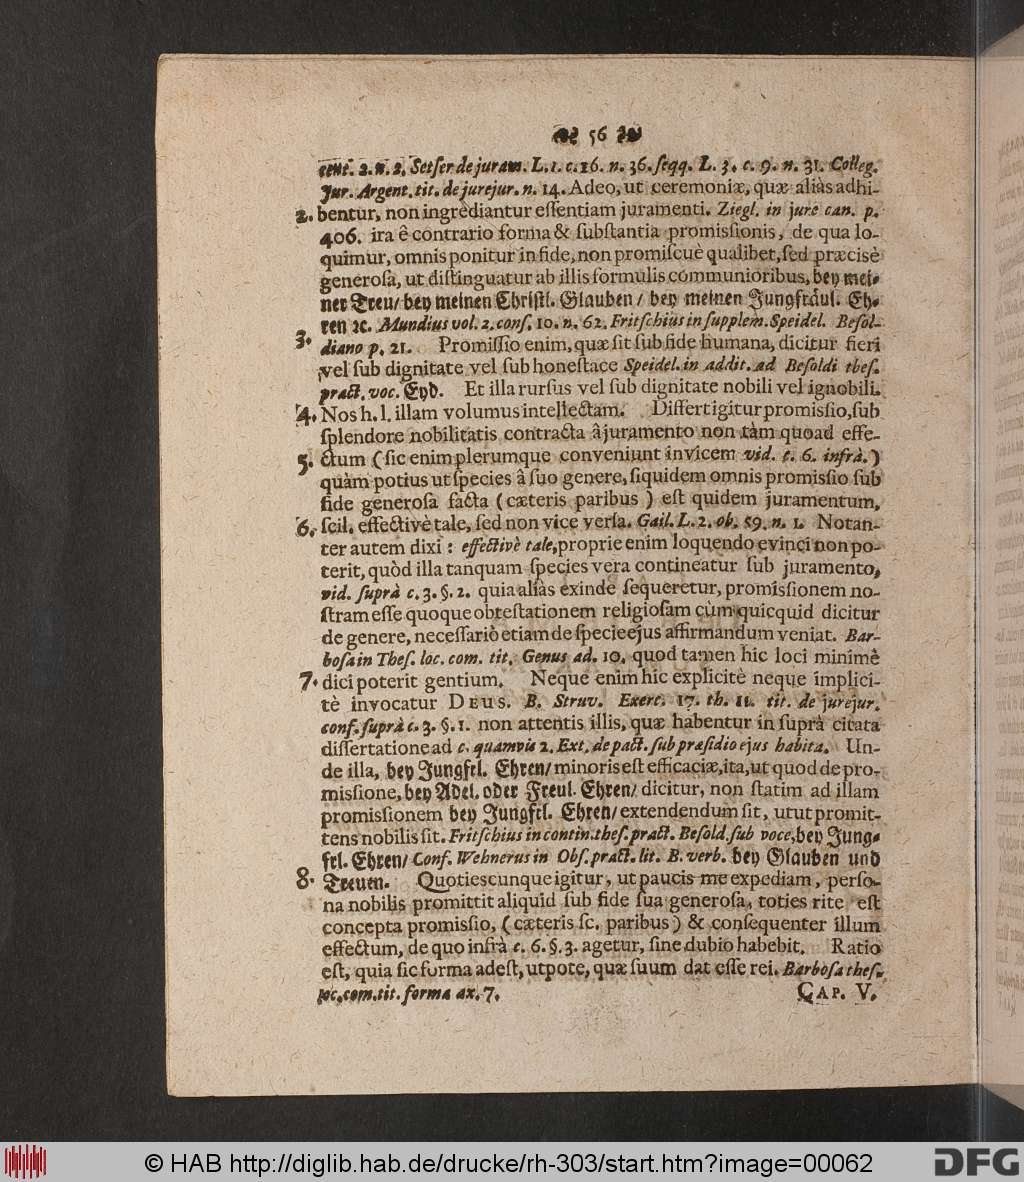 56
cent. 2. n. 2. Setser de juram. L. 1. c. 16. n. 36. ſeqq. L. 3. c. 9. n. 31. Colleg.
Jur. Argent. tit. de jurejur. n. 14. Adeo, ut ceremoniæ, quæ aliàs adhi-
2. bentur, non ingrediantur eſſentiam juramenti. Ziegl. in jure can. p.
406. ita ê contrario forma & ſubſtantia promiſſionis, de qua lo-
quimur, omnis ponitur in fide, non promiſcuè qualibet, ſed præcisè
generoſa, ut diſtinguatur ab illis formulis communioribus, bey mei-
ner Treu/ bey meinen Chriſtl. Glauben/ bey meinen Jungfräul. Eh-
ren ꝛc. Mundius vol. 2. conſ. 10. n. 62. Fritſchius in ſupplem. Speidel. Beſol-
3. diano p. 21. Promiſſio enim, quæ ſit ſub fide humana, dicitur fieri
vel ſub dignitate vel ſub honeſtace Speidel. in addit. ad Beſoldi theſ.
pract. voc. Eyd. Et illa rurſus vel ſub dignitate nobili vel ignobili.
4. Nos h. l. illam volumus intellectam. Differt igitur promiſſio, ſub
ſplendore nobilitatis contracta â juramento non tàm quoad effe-
5. ctum (ſic enim plerumque conveniunt invicem vid. c. 6. infrà.)
quàm potius ut ſpecies â ſuo genere, ſiquidem omnis promiſſio ſub
fide generoſa facta (cæteris paribus) eſt quidem juramentum,
6. ſcil. effectivè tale, ſed non vice verſa. Gail. L. 2. ob. 59. n. 1. Notan-
ter autem dixi: effectivè tale, proprie enim loquendo evinci non po-
terit, quòd illa tanquam ſpecies vera contineatur ſub juramento,
vid. ſuprà c. 3. §. 2. quia aliàs exinde ſequeretur, promiſſionem no-
ſtram eſſe quoque obteſtationem religioſam cùm quicquid dicitur
de genere, neceſſariò etiam de ſpecie ejus affirmandum veniat. Bar-
boſa in Theſ. loc. com. tit. Genus ad. 10. quod tamen hic loci minimè
7. dici poterit gentium. Neque enim hic explicitè neque implici-
tè invocatur DEUS. B. Struv. Exerc. 17. th. 11. tit. de jurejur.
conf. ſuprà c. 3. §. 1. non attentis illis, quæ habentur in ſuprà citata
diſſertatione ad c. quamvis 2. Ext. de pact. ſub præſidio ejus habita. Un-
de illa, bey Jungfrl. Ehren/ minoris eſt efficaciæ, ita, ut quod de pro-
miſſione, bey Adel. oder Freul. Ehren/ dicitur, non ſtatim ad illam
promiſſionem bey Jungfrl. Ehren/ extendendum ſit, utut promit-
tens nobilis ſit. Fritſchius in contin. theſ. pract. Beſold. ſub voce, bey Jung-
frl. Ehren/ Conf. Wehnerus in Obſ. pract. lit. B. verb. bey Glauben und
8. Treuen. Quotiescunque igitur, ut paucis me expediam, perſo-
na nobilis promittit aliquid ſub fide ſua generoſa, toties rite eſt
concepta promiſſio, (cæteris ſc. paribus) & conſequenter illum
effectum, de quo infrà c. 6. §. 3. agetur, ſine dubio habebit. Ratio
eſt, quia ſic forma adeſt, utpote, quæ ſuum dat eſſe rei. Barboſa theſ.
loc. com. tit. forma ax. 7. CAP. V.
© HAB http://diglib.hab.de/drucke/rh-303/start.htm?image=00062
DFG